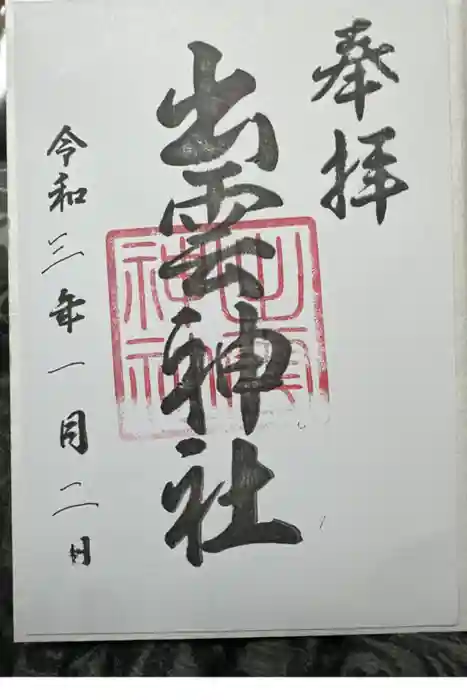 奉拝
出雲神社
出雲神社
令和三年一月二日